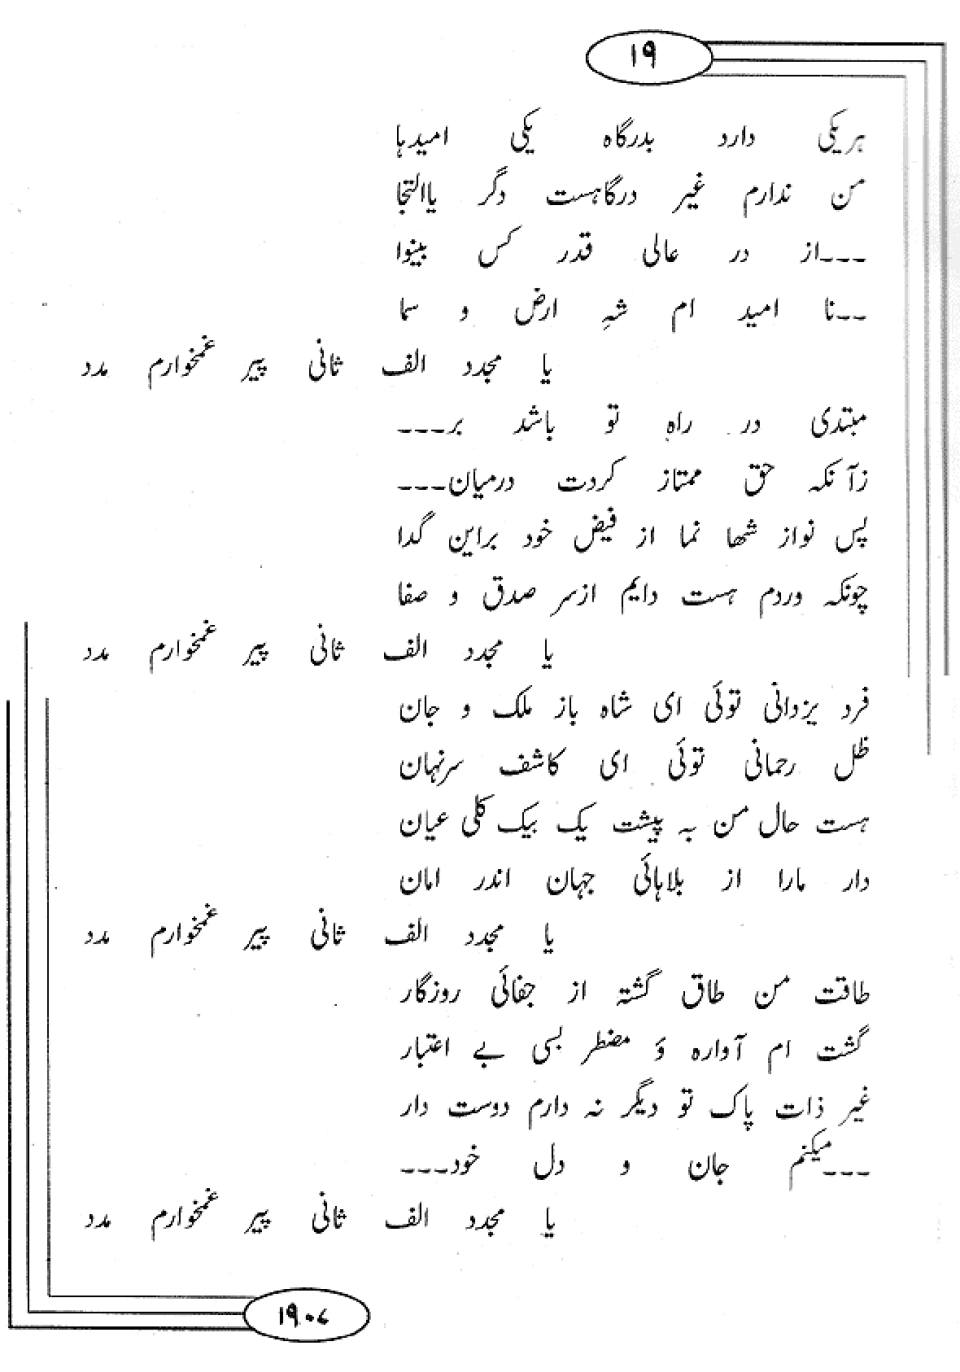 ۱۹
ہریکی دارد بدرگاہ یکی امیدہا
من ندارم غیر درگاہست دگر یاالتجا
۔۔۔از در عالی قدر کس بینوا
۔۔نا امید ام شہِ ارض و سما
یا مجدد الف ثانی پیر غمخوارم مدد
مبتدی در راہ تو باشد بر۔۔۔
زآنکہ حق ممتاز کردت درمیان۔۔۔
پس نواز شھا نما از فیض خود براین گدا
چونکہ وردم ہست دایم ازسر صدق و صفا
یا مجدد الف ثانی پیر غمخوارم مدد
فرد یزدانی توئی ای شاہ باز ملک و جان
ظل رحمانی توئی ای کاشف سرنہان
ہست حال من بہ پیشت یک بیک کلی عیان
دار مارا از بلاہائی جہان اندر امان
یا مجدد الف ثانی پیر غمخوارم مدد
طاقت من طاق گشتہ از جفائی روزگار
گشت ام آوارہ ؤ مضطر بسی بے اعتبار
غیر ذات پاک تو دیگر نہ دارم دوست دار
۔۔۔میکنم جان و دل خود۔۔۔
یا مجدد الف ثانی پیر غمخوارم مدد
۱۹۰۷